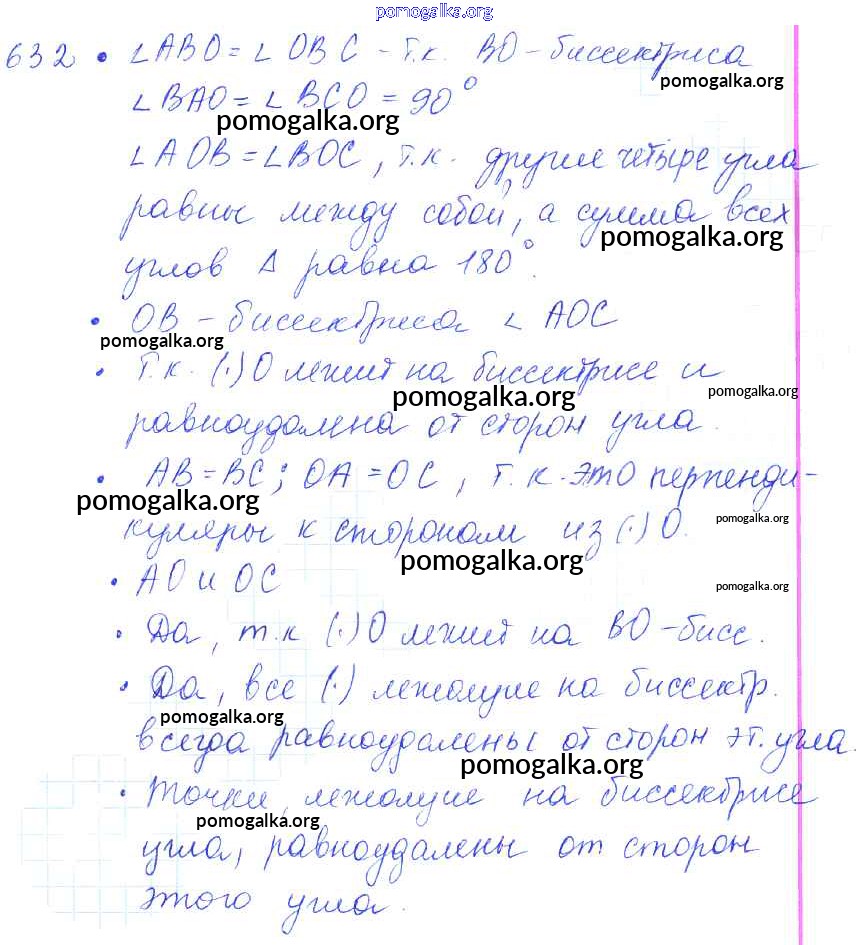 pomogalka.org
632 • ∠ABO = ∠OBC - т.к. BO - биссектриса
pomogalka.org
∠BAO = ∠BCO = 90°
pomogalka.org
∠AOB = ∠BOC, т.к. другие четыре угла
равны между собой, а сумма всех
pomogalka.org
углов Δ равна 180°.
• OB - биссектриса ∠AOC
pomogalka.org
• Т.к. (·) O лежит на биссектрисе и
pomogalka.org
pomogalka.org
равноудалена от сторон угла.
• AB = BC; OA = OC, т.к. это перпенди-
pomogalka.org
куляры к сторонам из (·) O.
pomogalka.org
pomogalka.org
• AO и OC
pomogalka.org
• Да, т.к (·) O лежит на BO - бисс.
• Да, все (·) лежащие на биссектр.
pomogalka.org
всегда равноудалены от сторон эт. угла.
pomogalka.org
• Точки, лежащие на биссектрисе
pomogalka.org
угла, равноудалены от сторон
этого угла.